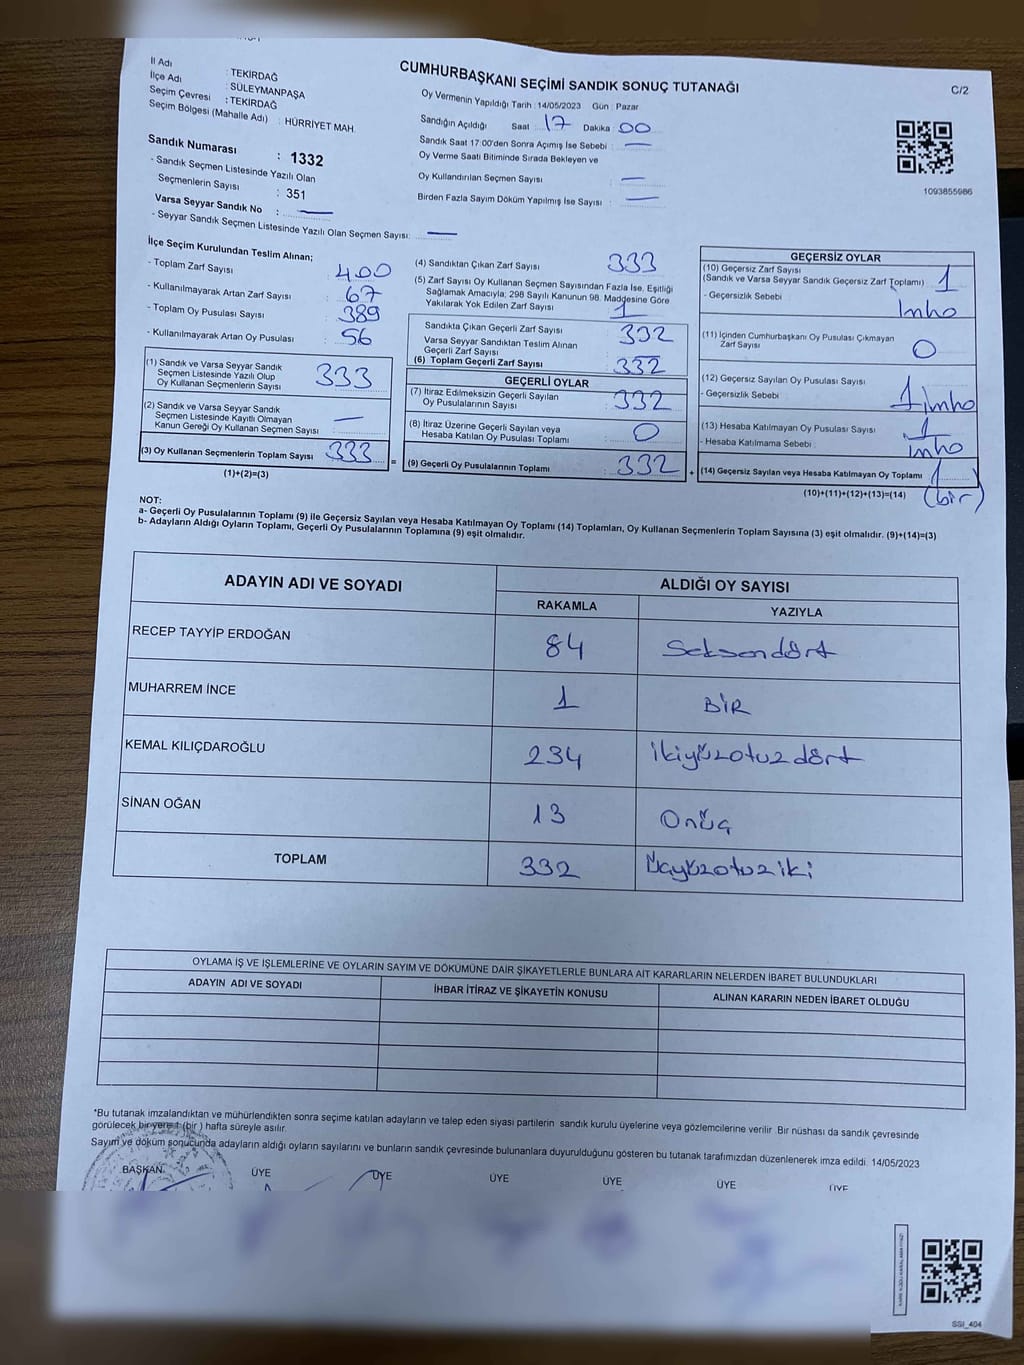 CUMHURBAŞKANI SEÇİMİ SANDIK SONUÇ TUTANAĞI
C/2
İl Adı : TEKİRDAĞ
İlçe Adı : SÜLEYMANPAŞA
Seçim Çevresi : TEKİRDAĞ
Seçim Bölgesi (Mahalle Adı) : HÜRRİYET MAH.
Sandık Numarası : 1332
- Sandık Seçmen Listesinde Yazılı Olan
Seçmenlerin Sayısı : 351
Varsa Seyyar Sandık No : —
- Seyyar Sandık Seçmen Listesinde Yazılı Olan Seçmen Sayısı: —
Oy Vermenin Yapıldığı Tarih : 14/05/2023 Gün : Pazar
Sandığın Açıldığı Saat : 17 Dakika : 00
Sandık Saat 17:00'den Sonra Açımış İse Sebebi : —
Oy Verme Saati Bitiminde Sırada Bekleyen ve
Oy Kullandırılan Seçmen Sayısı : —
Birden Fazla Sayım Döküm Yapılmış İse Sayısı : —
1093855986
İlçe Seçim Kurulundan Teslim Alınan;
- Toplam Zarf Sayısı : 400
- Kullanılmayarak Artan Zarf Sayısı : 67
- Toplam Oy Pusulası Sayısı : 389
- Kullanılmayarak Artan Oy Pusulası : 56
(1) Sandık ve Varsa Seyyar Sandık
Seçmen Listesinde Yazılı Olup
Oy Kullanan Seçmenlerin Sayısı : 333
(2) Sandık ve Varsa Seyyar Sandık
Seçmen Listesinde Kayıtlı Olmayan
Kanun Gereği Oy Kullanan Seçmen Sayısı : —
(3) Oy Kullanan Seçmenlerin Toplam Sayısı : 333
(1)+(2)=(3)
(4) Sandıktan Çıkan Zarf Sayısı : 333
(5) Zarf Sayısı Oy Kullanan Seçmen Sayısından Fazla İse, Eşitliği
Sağlamak Amacıyla; 298 Sayılı Kanunun 98. Maddesine Göre
Yakılarak Yok Edilen Zarf Sayısı : 1
Sandıkta Çıkan Geçerli Zarf Sayısı : 332
Varsa Seyyar Sandıktan Teslim Alınan
Geçerli Zarf Sayısı :
(6) Toplam Geçerli Zarf Sayısı : 332
GEÇERLİ OYLAR
(7) İtiraz Edilmeksizin Geçerli Sayılan
Oy Pusulalarının Sayısı : 332
(8) İtiraz Üzerine Geçerli Sayılan veya
Hesaba Katılan Oy Pusulası Toplamı : 0
= (9) Geçerli Oy Pusulalarının Toplamı : 332 +
GEÇERSİZ OYLAR
(10) Geçersiz Zarf Sayısı
(Sandık ve Varsa Seyyar Sandık Geçersiz Zarf Toplamı) : 1
- Geçersizlik Sebebi : İmha
(11) İçinden Cumhurbaşkanı Oy Pusulası Çıkmayan
Zarf Sayısı : 0
(12) Geçersiz Sayılan Oy Pusulası Sayısı : 1
- Geçersizlik Sebebi : imha
(13) Hesaba Katılmayan Oy Pusulası Sayısı : 1
- Hesaba Katılmama Sebebi : imha
(14) Geçersiz Sayılan veya Hesaba Katılmayan Oy Toplamı : 1
(10)+(11)+(12)+(13)=(14) (bir)
NOT:
a- Geçerli Oy Pusulalarının Toplamı (9) ile Geçersiz Sayılan veya Hesaba Katılmayan Oy Toplamı (14) Toplamları, Oy Kullanan Seçmenlerin Toplam Sayısına (3) eşit olmalıdır. (9)+(14)=(3)
b- Adayların Aldığı Oyların Toplamı, Geçerli Oy Pusulalarının Toplamına (9) eşit olmalıdır.
ADAYIN ADI VE SOYADI ALDIĞI OY SAYISI
RAKAMLA YAZIYLA
RECEP TAYYİP ERDOĞAN 84 Seksendört
MUHARREM İNCE 1 BİR
KEMAL KILIÇDAROĞLU 234 ikiyüzotuzdört
SİNAN OĞAN 13 Onüç
TOPLAM 332 Üçyüzotuziki
OYLAMA İŞ VE İŞLEMLERİNE VE OYLARIN SAYIM VE DÖKÜMÜNE DAİR ŞİKAYETLERLE BUNLARA AİT KARARLARIN NELERDEN İBARET BULUNDUKLARI
ADAYIN ADI VE SOYADI İHBAR İTİRAZ VE ŞİKAYETİN KONUSU ALINAN KARARIN NEDEN İBARET OLDUĞU
*Bu tutanak imzalandıktan ve mühürlendikten sonra seçime katılan adayların ve talep eden siyasi partilerin sandık kurulu üyelerine veya gözlemcilerine verilir. Bir nüshası da sandık çevresinde
görülecek bir yere 1 (bir ) hafta süreyle asılır.
Sayım ve döküm sonucunda adayların aldığı oyların sayılarını ve bunların sandık çevresinde bulunanlara duyurulduğunu gösteren bu tutanak tarafımızdan düzenlenerek imza edildi. 14/05/2023
BAŞKAN ÜYE ÜYE ÜYE ÜYE ÜYE ÜYE
SSI_404